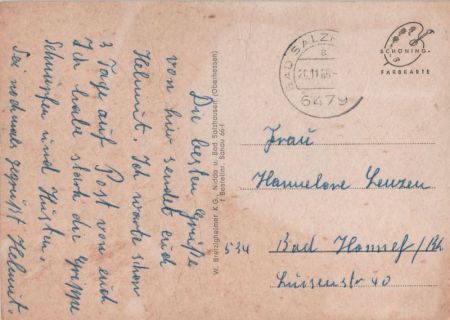 Die besten Grüße
von hier sendet euch
Helmut. Ich warte schon
3 Tage auf Post von euch
Ich habe stark die Grippe
Schnupfen und Husten.
Sei nochmals gegrüßt Helmut.
W. Bretzigheimer K.G. Nidda u. Bad Salzhausen (Oberhessen)
Bestellnr. Schau 66
BAD SALZH
6479
SCHÖNING-
FARBKARTE
Frau
Hannelore Lenzen
534 Bad Honnef/Rh
Luisenstr 40